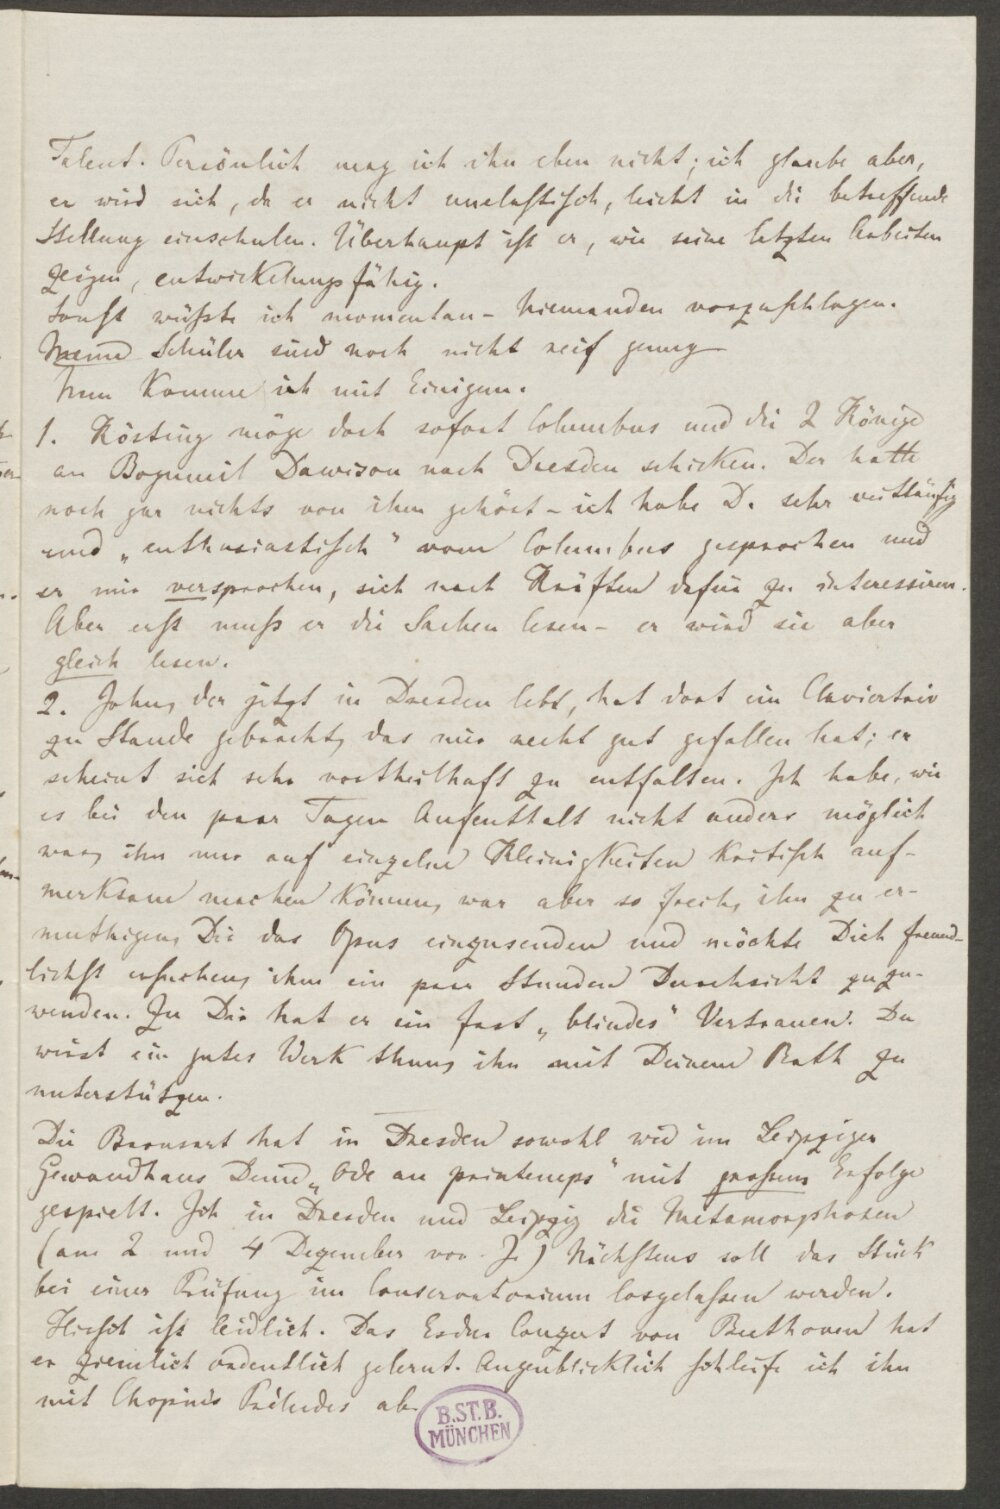 Talent. Persönlich mag ich ihn eben nicht; ich glaube aber,
er wird sich, da er nicht unelastisch, leicht in die betreffende
Stellung einschulen. Überhaupt ist er, wie seine letzten Arbeiten
zeigen, entwickelungsfähig.
Sonst wüßte ich momentan – Niemanden vorzuschlagen.
Meine Schüler sind noch nicht reif genug
Nun komme ich mit Einigem.
1. Kösting möge doch sofort Columbus und die 2 Könige
an Bogumil Dawison nach Dresden schicken. Der hatte
noch gar nichts von ihm gehört – ich habe D. sehr weitläufig
und „enthusiastisch“ vom Columbus gesprochen und
er mir versprochen, sich nach Kräften dafür zu interessiren.
Aber erst muß er die Sachen lesen – er wird sie aber
gleich lesen.
2. John, der jetzt in Dresden lebt, hat dort ein Claviertrio
zu Stande gebracht, das mir recht gut gefallen hat; er
scheint sich sehr vortheilhaft zu entfalten. Ich habe, wie
es bei den paar Tagen Aufenthalt nicht anders möglich
war, ihn nur auf einzelne Kleinigkeiten kritisch auf-
merksam machen können, war aber so frech, ihn zu er-
muthigen, Dir das Opus einzusenden und möchte Dich freund-
lichst ersuchen, ihm ein paar Stunden Durchsicht zuzu-
wenden. Zu Dir hat er ein fast „blindes“ Vertrauen. Du
wirst ein gutes Werk thun, ihn mit Deinem Rath zu
unterstützen.
Die Bronsart hat in Dresden sowohl wie im Leipziger
Gewandhaus Deine „Ode au printemps“ mit großem Erfolge
gespielt. Ich in Dresden und Leipzig die Metamorphosen
(am 2 und 4 Dezember vor. J.) Nächstens soll das Stück
bei einer Prüfung im Conservatorium losgelassen werden.
Hirsch ist leidlich. Das Esdur Conzert von Beethoven hat
er ziemlich ordentlich gelernt. Augenblicklich schleife ich ihn
mit Chopin's Préludes ab.
B.ST.B.
MÜNCHEN